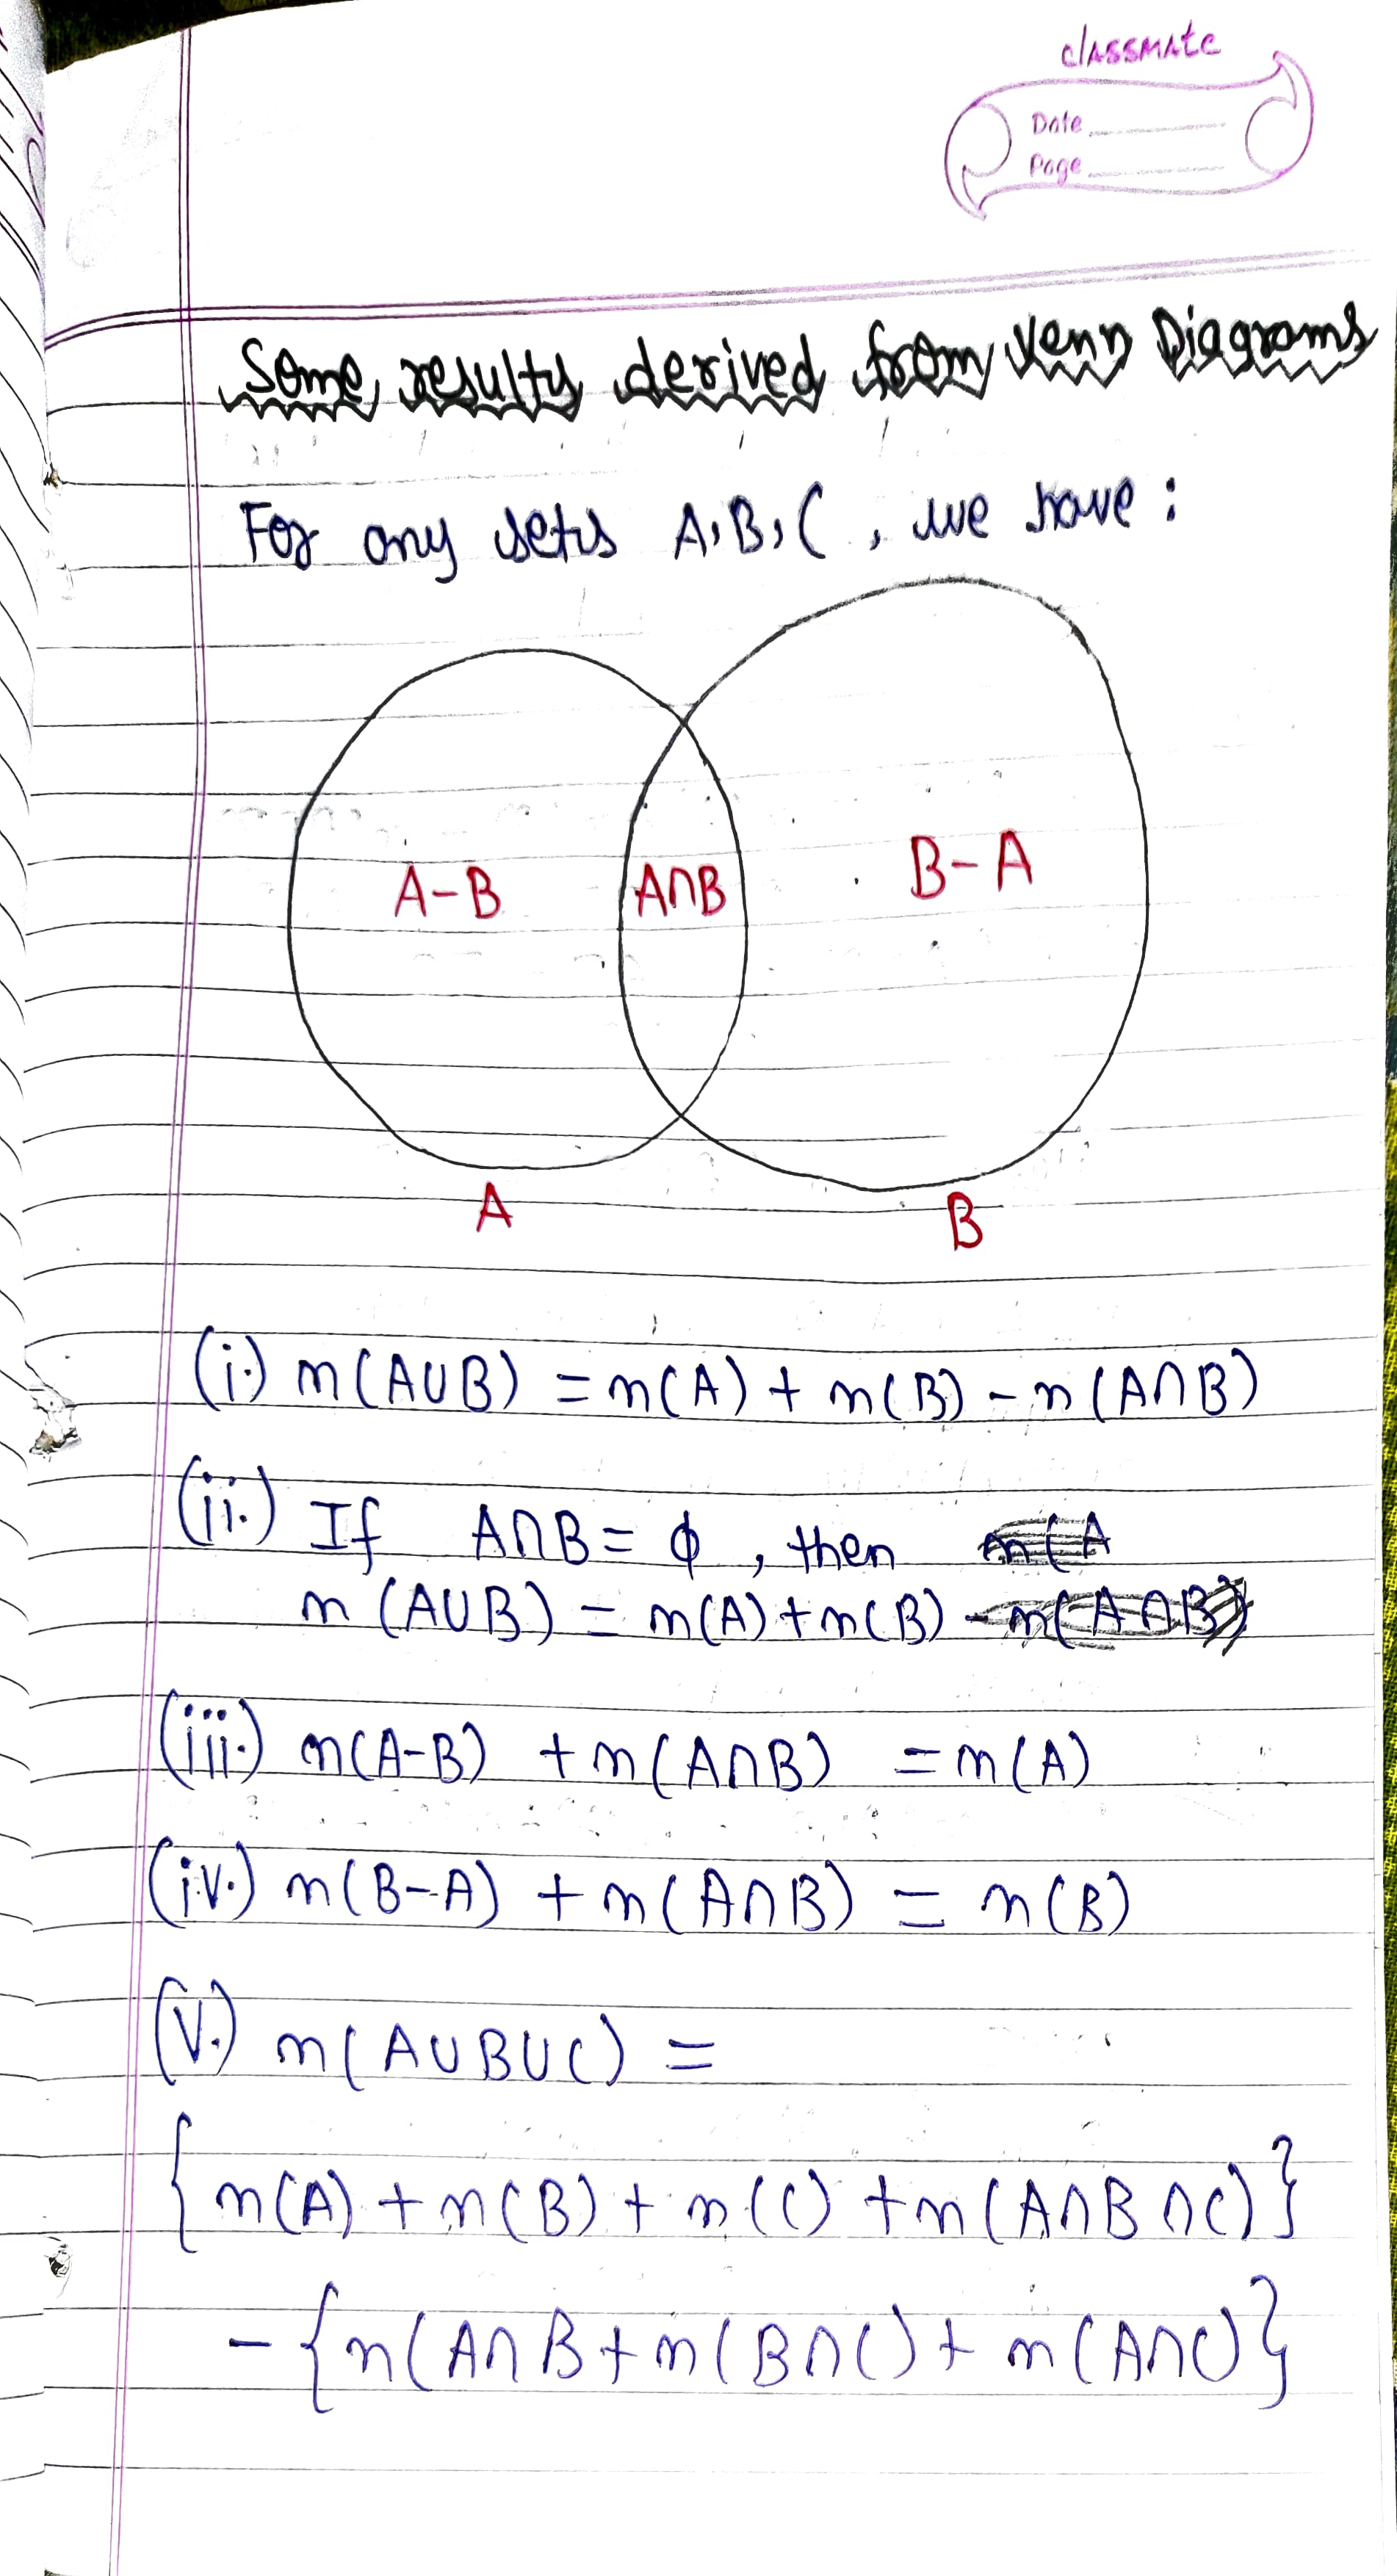 classmate
Date
Page
Some results derived from Venn Diagrams
For any sets A, B, C, we have:
A-B
A∩B
B-A
A
B
(i.) n(A∪B) = n(A) + n(B) - n(A∩B)
(ii.) If A∩B = ϕ, then
n(A∪B) = n(A) + n(B)
(iii.) n(A-B) + n(A∩B) = n(A)
(iv.) n(B-A) + n(A∩B) = n(B)
(v.) n(A∪B∪C) =
{n(A) + n(B) + n(C) + n(A∩B∩C)}
- {n(A∩B + n(B∩C) + n(A∩C)}